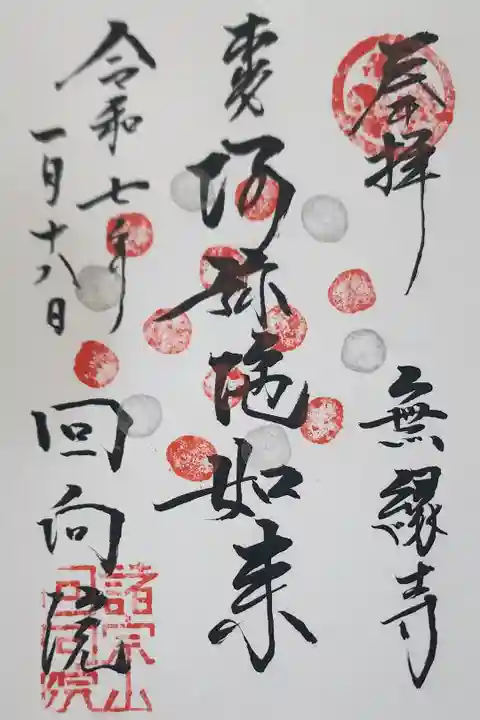 奉拝
無縁寺
本尊 阿弥陀如来
令和七年
一月十八日
回向院
諸宗山
回向院